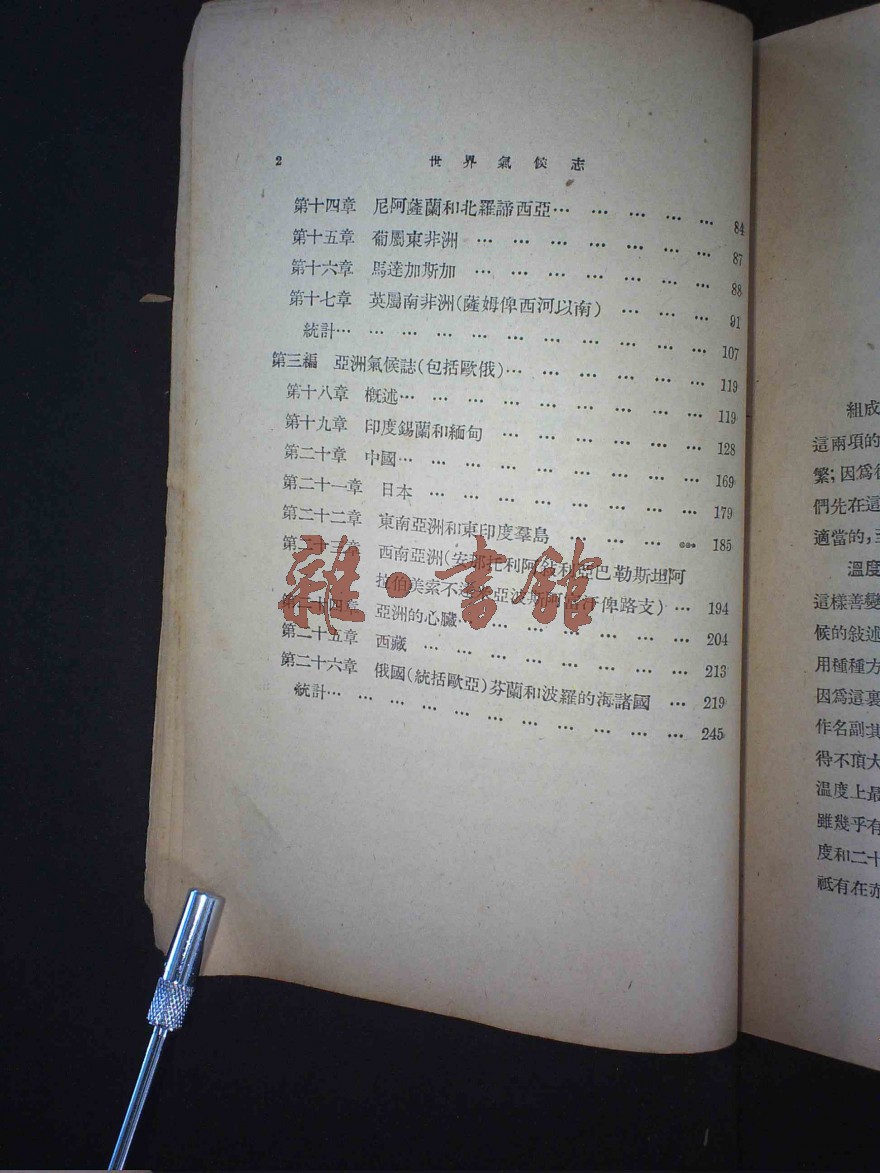 2 世界氣候志
第十四章 尼阿薩蘭和北羅諦西亞… … … … … … 84
第十五章 葡屬東非洲 … … … … … … … 87
第十六章 馬達加斯加 … … … … … … … 88
第十七章 英屬南非洲(薩姆俾西河以南) … … … 91
統計… … … … … … … … … … … 107
第三編 亞洲氣候誌(包括歐俄)… … … … … … 119
第十八章 概述… … … … … … … … … 119
第十九章 印度錫蘭和緬甸 … … … … … … 128
第二十章 中國… … … … … … … … … 169
第二十一章 日本 … … … … … … … … 179
第二十二章 東南亞洲和東印度羣島 … … … … 185
第二十三章 西南亞洲(安那托利阿敍利亞巴勒斯坦阿
拉伯美索不達米亞波斯阿富汗俾路支) … 194
第二十四章 亞洲的心臟… … … … … … … 204
第二十五章 西藏 … … … … … … … … 213
第二十六章 俄國(統括歐亞)芬蘭和波羅的海諸國 … 219
統計… … … … … … … … … … … 245
雜·書館
組成
這兩項的
繁;因爲
們先在這
適當的,
溫度
這樣善變
候的敍述
用種種方
因爲這裏
作名副其
得不頂大
溫度上最
雖幾乎有
度和二十
祇有在赤